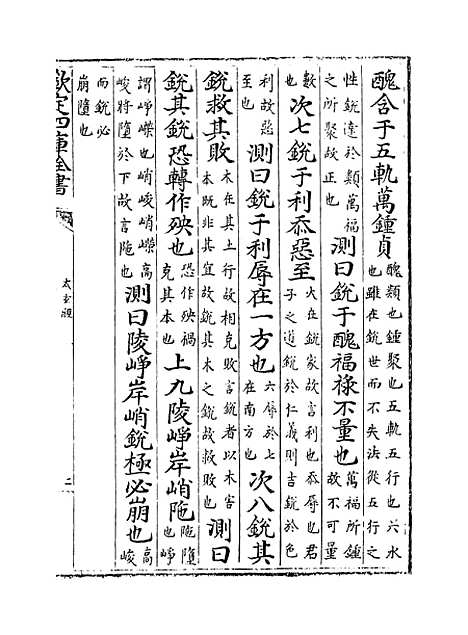 醜含于五軌萬鍾貞醜類也鍾聚也五軌五行也六水也雖在銳世而不失法從五行之
性銳達於類萬福之所聚故正也測曰銳于醜福祿不量也萬福所鍾故不可量
數也次七銳于利忝惡至火在銳家故言利也忝辱也君子之道銳於仁義則吉銳於色
利故惡至也測曰銳于利辱在一方也六辱於七在南方也次八銳其
銳救其敗木在其土行故相克敗言銳者以木害本既非其宜故銳其木之銳故救敗也測曰
銳其銳恐轉作殃也恐作殃禍克其本也上九陵崢岸峭陁陁隳也崢
謂崢嶸也峭峻峭嶸高峻將隨於下故言陁也測曰陵崢岸峭銳極必崩也高峻
而銳必崩隨也
欽定四庫全書
太玄經
二